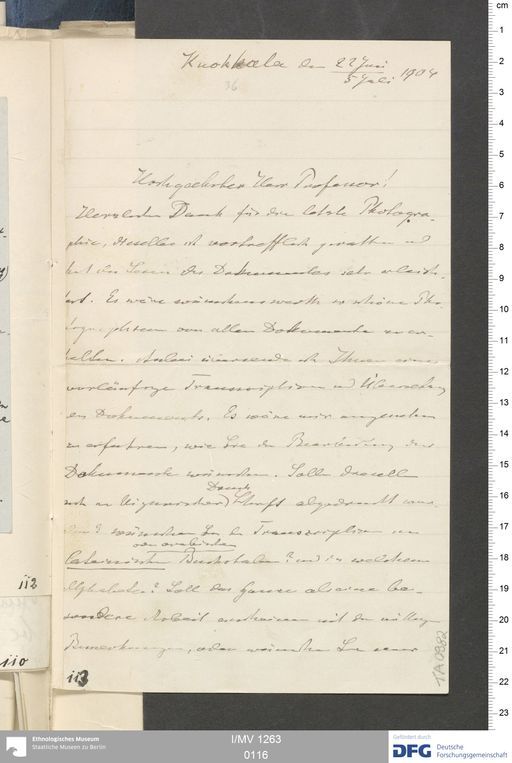 Kuokkala den 22 Juni / 5 Juli 1904
36
Hochgeehrter Herr Professor!
Herzlichen Dank für die letzte Photogra-
phie, dieselbe ist vortrefflich gerathen und
hat das Lesen des Dokumentes sehr erleich-
tert. Es wäre wünschenswerth so schöne Pho-
tographieen von allen Dokumenten zu er-
halten. Anbei übersende ich Ihnen eine
vorläufige Transcription und Übersetzung
des Dokuments. Es wäre mir angenehm
zu erfahren, wie Sie die Bearbeitung der
Dokumente wünschen. Sollen dieselben
auch in Uigurischer Schrift abgedruckt wer-
Druck
den? wünschen Sie die Transcription in
oder arabischen
lateinischen Buchstaben? und in welchem
Alphabete? Soll das Ganze als eine be-
sondere Arbeit erscheinen mit den nöthigen
Bemerkungen, oder wünschen Sie nur
112
110
113
TA 0982
Ethnologisches Museum
Staatliche Museen zu Berlin
I/MV 1263
0116
Gefördert durch
DFG Deutsche
Forschungsgemeinschaft
cm
1
2
3
4
5
6
7
8
9
10
11
12
13
14
15
16
17
18
19
20
21
22
23